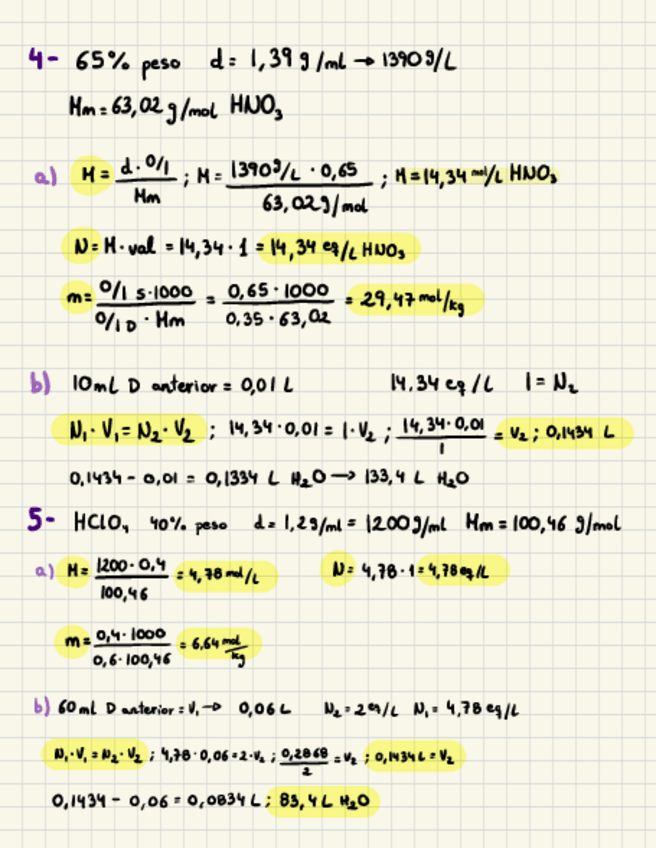 4- 65% peso d = 1,39 g/ml → 1390 g/L
Mm = 63,02 g/mol HNO₃
a) M = d · °/1 / Mm ; M = 1390 g/L · 0,65 / 63,02 g/mol ; M = 14,34 mol/L HNO₃
N = M · val = 14,34 · 1 = 14,34 eq/L HNO₃
m = °/1 s · 1000 / °/1 D · Mm = 0,65 · 1000 / 0,35 · 63,02 = 29,47 mol/kg
b) 10 mL D anterior = 0,01 L 14,34 eq/L 1 = N₂
N₁ · V₁ = N₂ · V₂ ; 14,34 · 0,01 = 1 · V₂ ; 14,34 · 0,01 / 1 = V₂ ; 0,1434 L
0,1434 - 0,01 = 0,1334 L H₂O → 133,4 L H₂O
5- HClO₄ 40% peso d = 1,2 g/ml = 1200 g/ml Mm = 100,46 g/mol
a) M = 1200 · 0,4 / 100,46 = 4,78 mol/L N = 4,78 · 1 = 4,78 eq/L
m = 0,4 · 1000 / 0,6 · 100,46 = 6,64 mol/kg
b) 60 ml D anterior = V₁ → 0,06 L N₂ = 2 eq/L N₁ = 4,78 eq/L
N₁ · V₁ = N₂ · V₂ ; 4,78 · 0,06 = 2 · V₂ ; 0,2868 / 2 = V₂ ; 0,1434 L = V₂
0,1434 - 0,06 = 0,0834 L ; 83,4 L H₂O